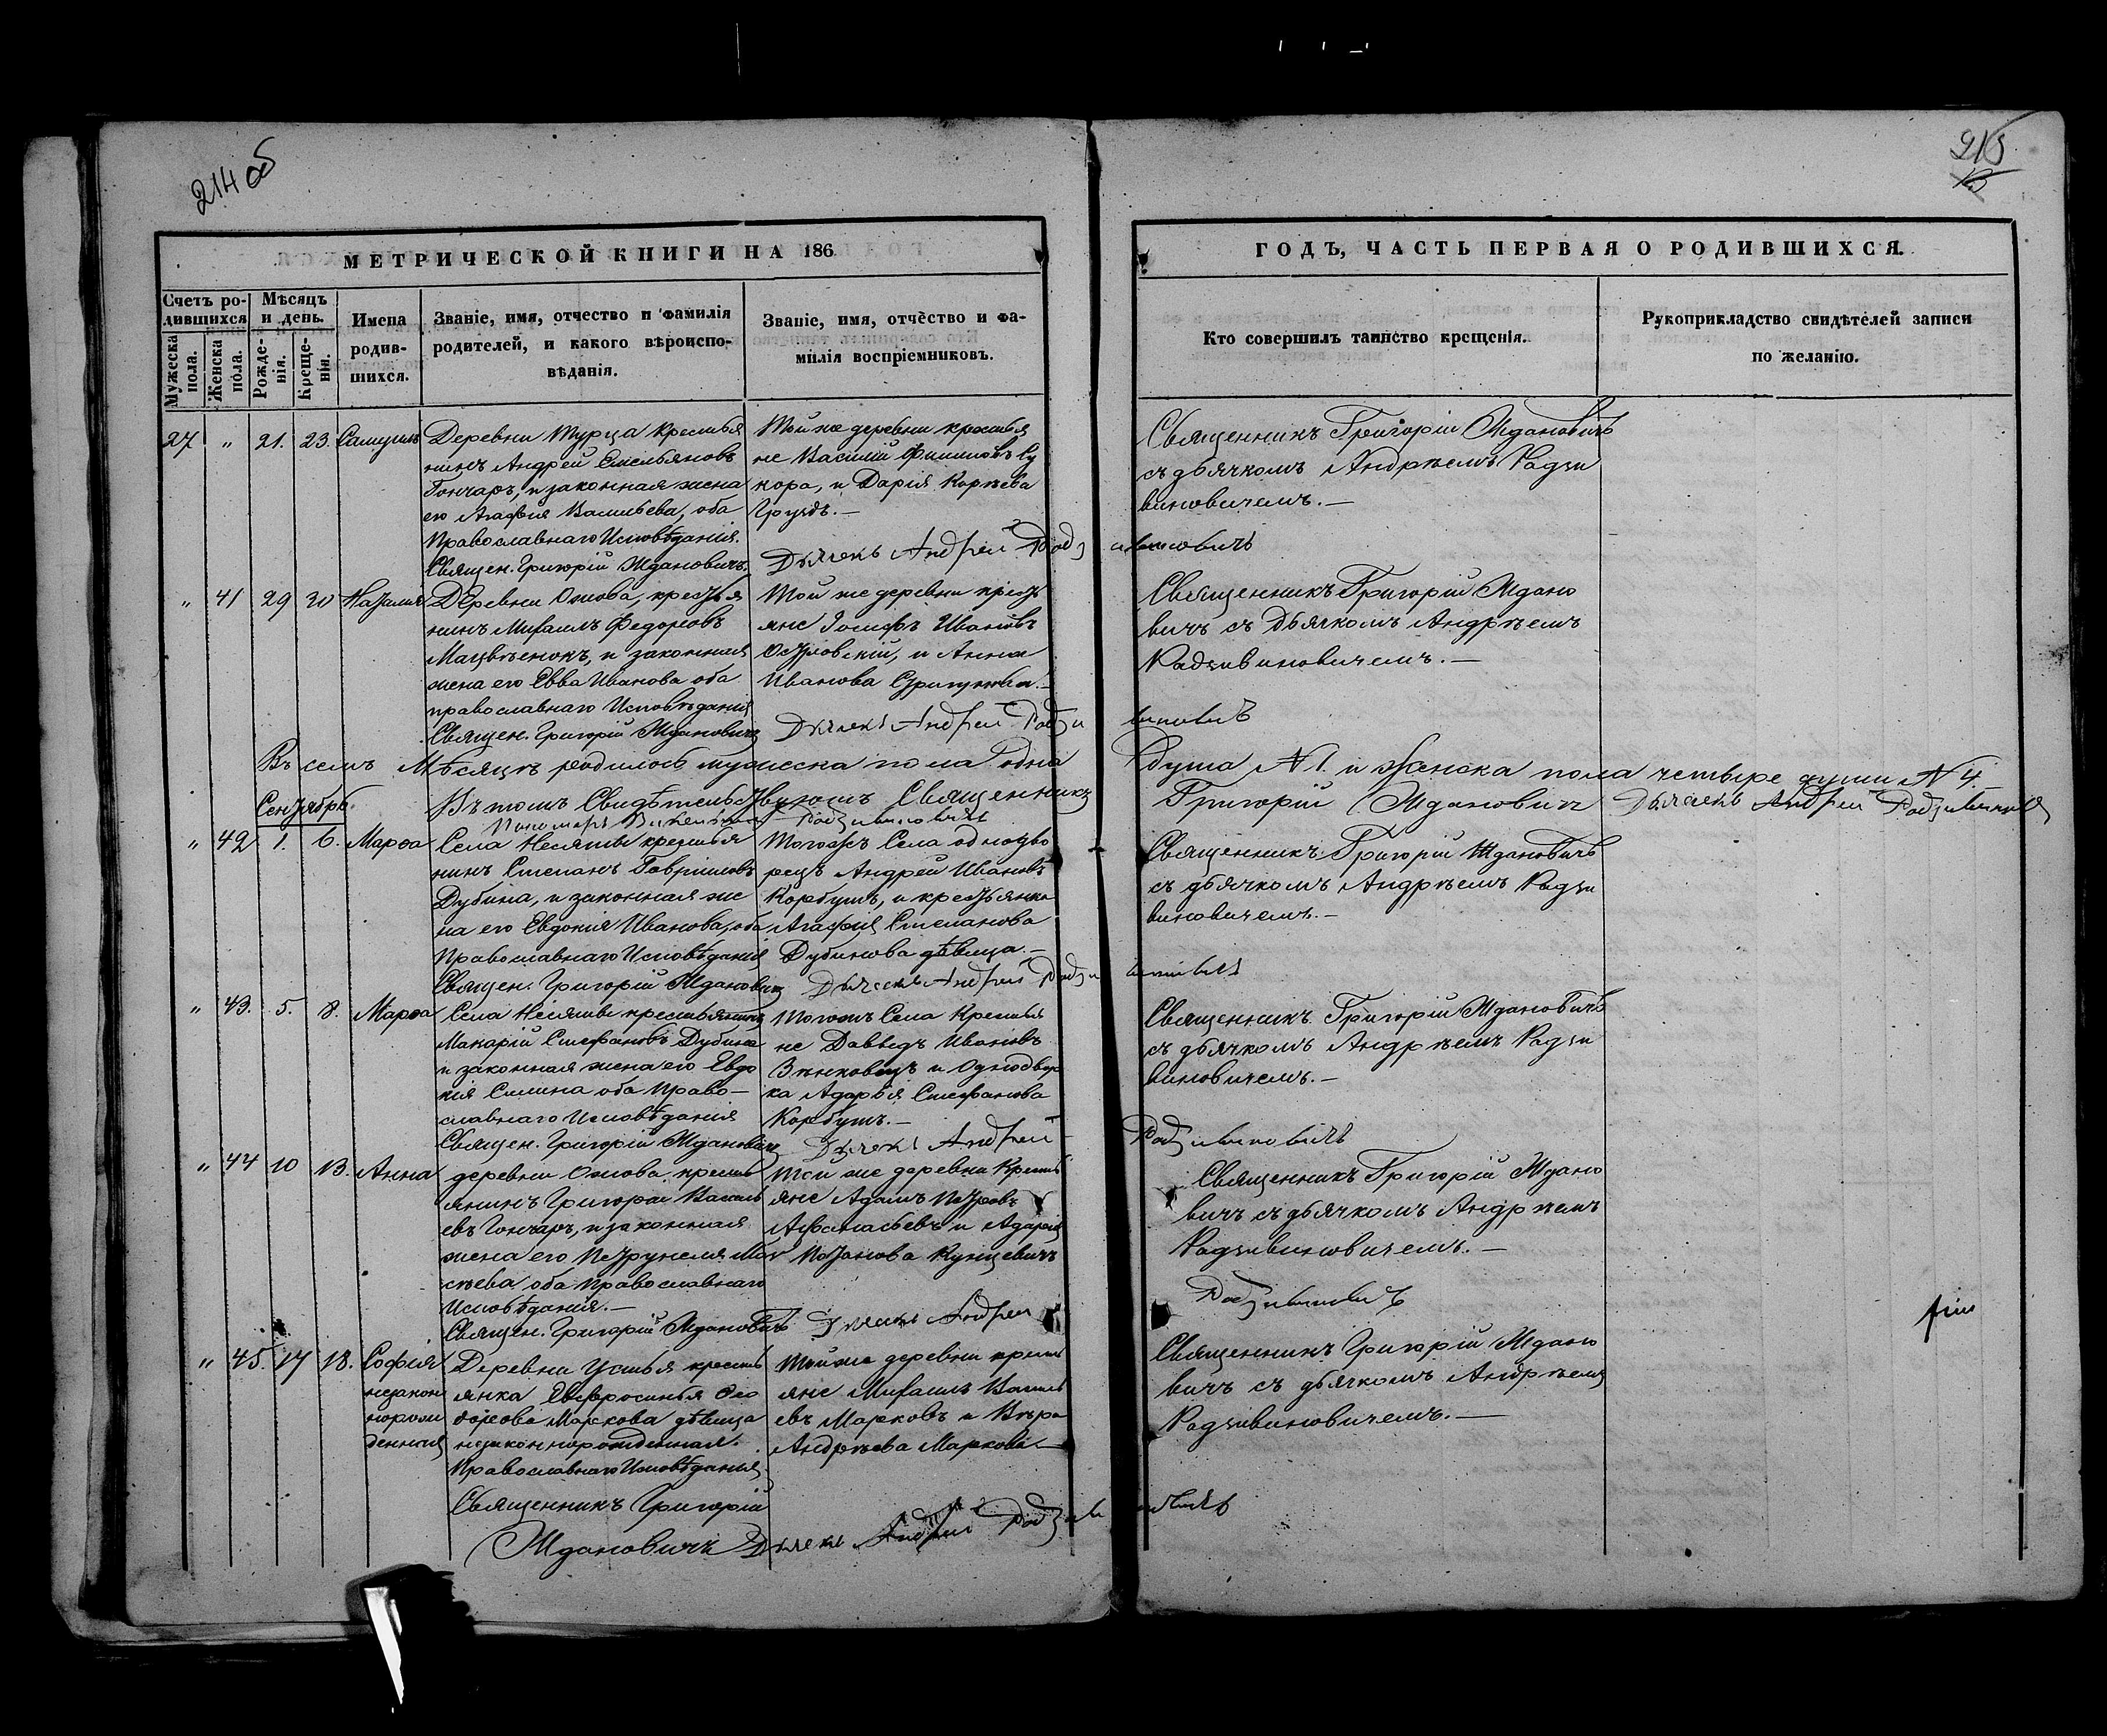 214 об
215
МЕТРИЧЕСКОЙ КНИГИ НА 186
ГОДЪ, ЧАСТЬ ПЕРВАЯ О РОДИВШИХСЯ.
Счетъ ро-
дившихся
Мужеска пола.
Женска пола.
Мѣсяцъ
и день.
Рожде-
нія.
Креще-
нія.
Имена
родив-
шихся.
Званіе, имя, отчество и фамилія
родителей, и какого вѣроиспо-
вѣданія.
Званіе, имя, отчество и фа-
милія воспріемниковъ.
Кто совершилъ таинство крещенія.
Рукоприкладство свидѣтелей записи
по желанію.
27 " 21. 23. Самуилъ
Деревни Турца крестья
нинъ Андрей Емельяновъ
Гончаръ, и законная жена
его Агафія Васильева, оба
Православнаго Исповѣданія.
Священ. Григорій Ждановичъ.
Той же деревни крестья
не Василій Филиповъ Су
кора, и Дарія Корнѣева
Груздъ.—
Дьячекъ Андрей Радзивиновичъ
Священникъ Григорій Ждановичъ
съ дьячкомъ Андрѣемъ Радзи
виновичемъ.—
" 41 29 30 Наталія
Деревни Ожова, крестья
нинъ Михаилъ Федоровъ
Мацвѣенокъ, и законная
жена его Евва Иванова оба
православнаго Исповѣданія
Священ. Григорій Ждановичъ
Той же деревни кресть
яне Іосифъ Ивановъ
и Анна
Иванова
Дьячекъ Андрей Радзивиновичъ
Священникъ Григорій Ждано
вичъ съ Дьячкомъ Андрѣемъ
Радзивиновичемъ.—
Въ семъ Мѣсяцѣ родилось мужеска пола одна душа N 1. и женска пола четыре души N 4.
Въ томъ Свидѣтельствуютъ Священникъ Григорій Ждановичъ Дьячекъ Андрей Радзивиновичъ
Пономаръ Викентій Радзивиновичъ
Сентябрь.
" 42 1. 6. Марѳа
Села Несятъ крестья
нинъ Степанъ Гавриловъ
Дубина, и законная же
на его Евдокія Иванова, оба
Православнаго Исповѣданія
Священ. Григорій Ждановичъ
Тогожъ Села однодво
рецъ Андрей Ивановъ
Корбутъ, и крестьянка
Агафія Степанова
Дубинова дѣвица.—
Дьячекъ Андрей Радзивиновичъ
Священникъ Григорій Ждановичъ
съ дьячкомъ Андрѣемъ Радзи
виновичемъ.—
" 43. 5. 8. Марѳа
Села Несятъ крестьянинъ
Макарій Стефановъ Дубина
и законная жена его Евдо
кія Силина оба Право—
славнаго Исповѣданія
Священ. Григорій Ждановичъ
Тогожъ Села Крестья
не Давыдъ Ивановъ
и Однодвор
ка Адарья Стефанова
Корбутъ.—
Дьячекъ Андрей Радзивиновичъ
Священникъ Григорій Ждановичъ
съ дьячкомъ Андрѣемъ Радзи
виновичемъ.—
" 44 10 13. Анна
деревни Ожова кресть
янинъ Григорій Василь
евъ Гончаръ, и законная
жена его Петрунеля Мат
вѣева оба Православнаго
Исповѣданія.—
Священ. Григорій Ждановичъ
Той же деревни Кресть
яне Адамъ Петровъ
Афанасьевъ и Адарія
Потапова Кунцевичъ
Дьячекъ Андрей Радзивиновичъ
Священникъ Григорій Ждано
вичъ съ дьячкомъ Андрѣемъ
Радзивиновичемъ.—
" 45. 14 18. София
незакон
норож
денная
Деревни Устья кресть
янка Евфросинья Фео
дорова Маркова дѣвица
незаконнорожденная.
Православнаго Исповѣданія
Священникъ Григорій
Ждановичъ
Той же деревни кресть
яне Михаилъ Василь
евъ Марковъ и Вѣра
Андрѣева Маркова—
Дьячекъ Андрей Радзивиновичъ
Священникъ Григорій Ждано
вичъ съ дьячкомъ Андрѣемъ
Радзивиновичемъ.—